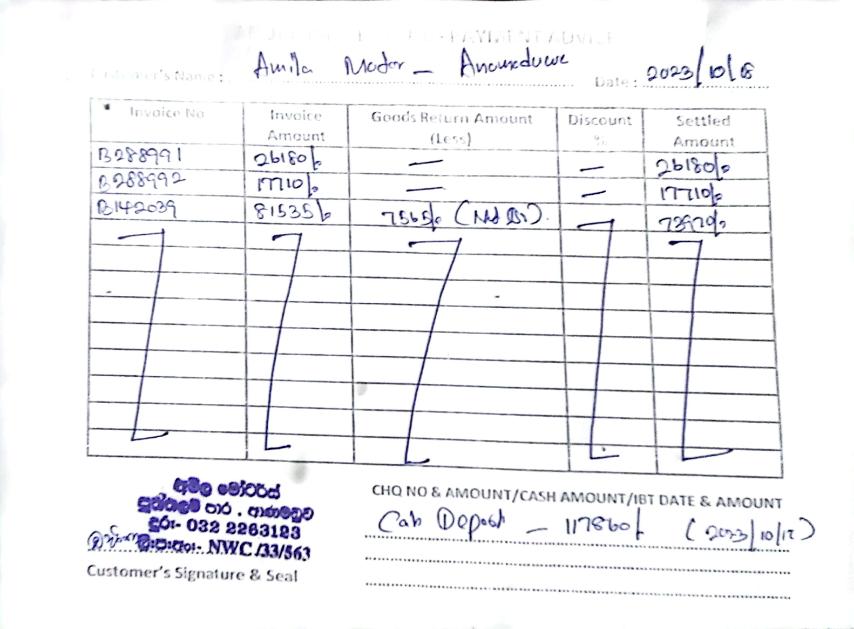 PAYMENT ADVICE
Customer's Name : Amila Motor - Anamaduwa Date : 2023/10/18
Invoice No Invoice Amount Goods Return Amount (Less) Discount % Settled Amount
B288991 26180/- — — 26180/-
B288992 17710/- — — 17710/-
B142039 81535/- 7565/- 73970/-
අමිල මෝටර්ස්
පුත්තලම පාර , ආණමඩුව
දුර:- 032 2263123
ලි:ප:අං:- NWC /33/563
Customer's Signature & Seal
CHQ NO & AMOUNT/CASH AMOUNT/IBT DATE & AMOUNT
Cash Deposit - 117860/- (2023/10/17)